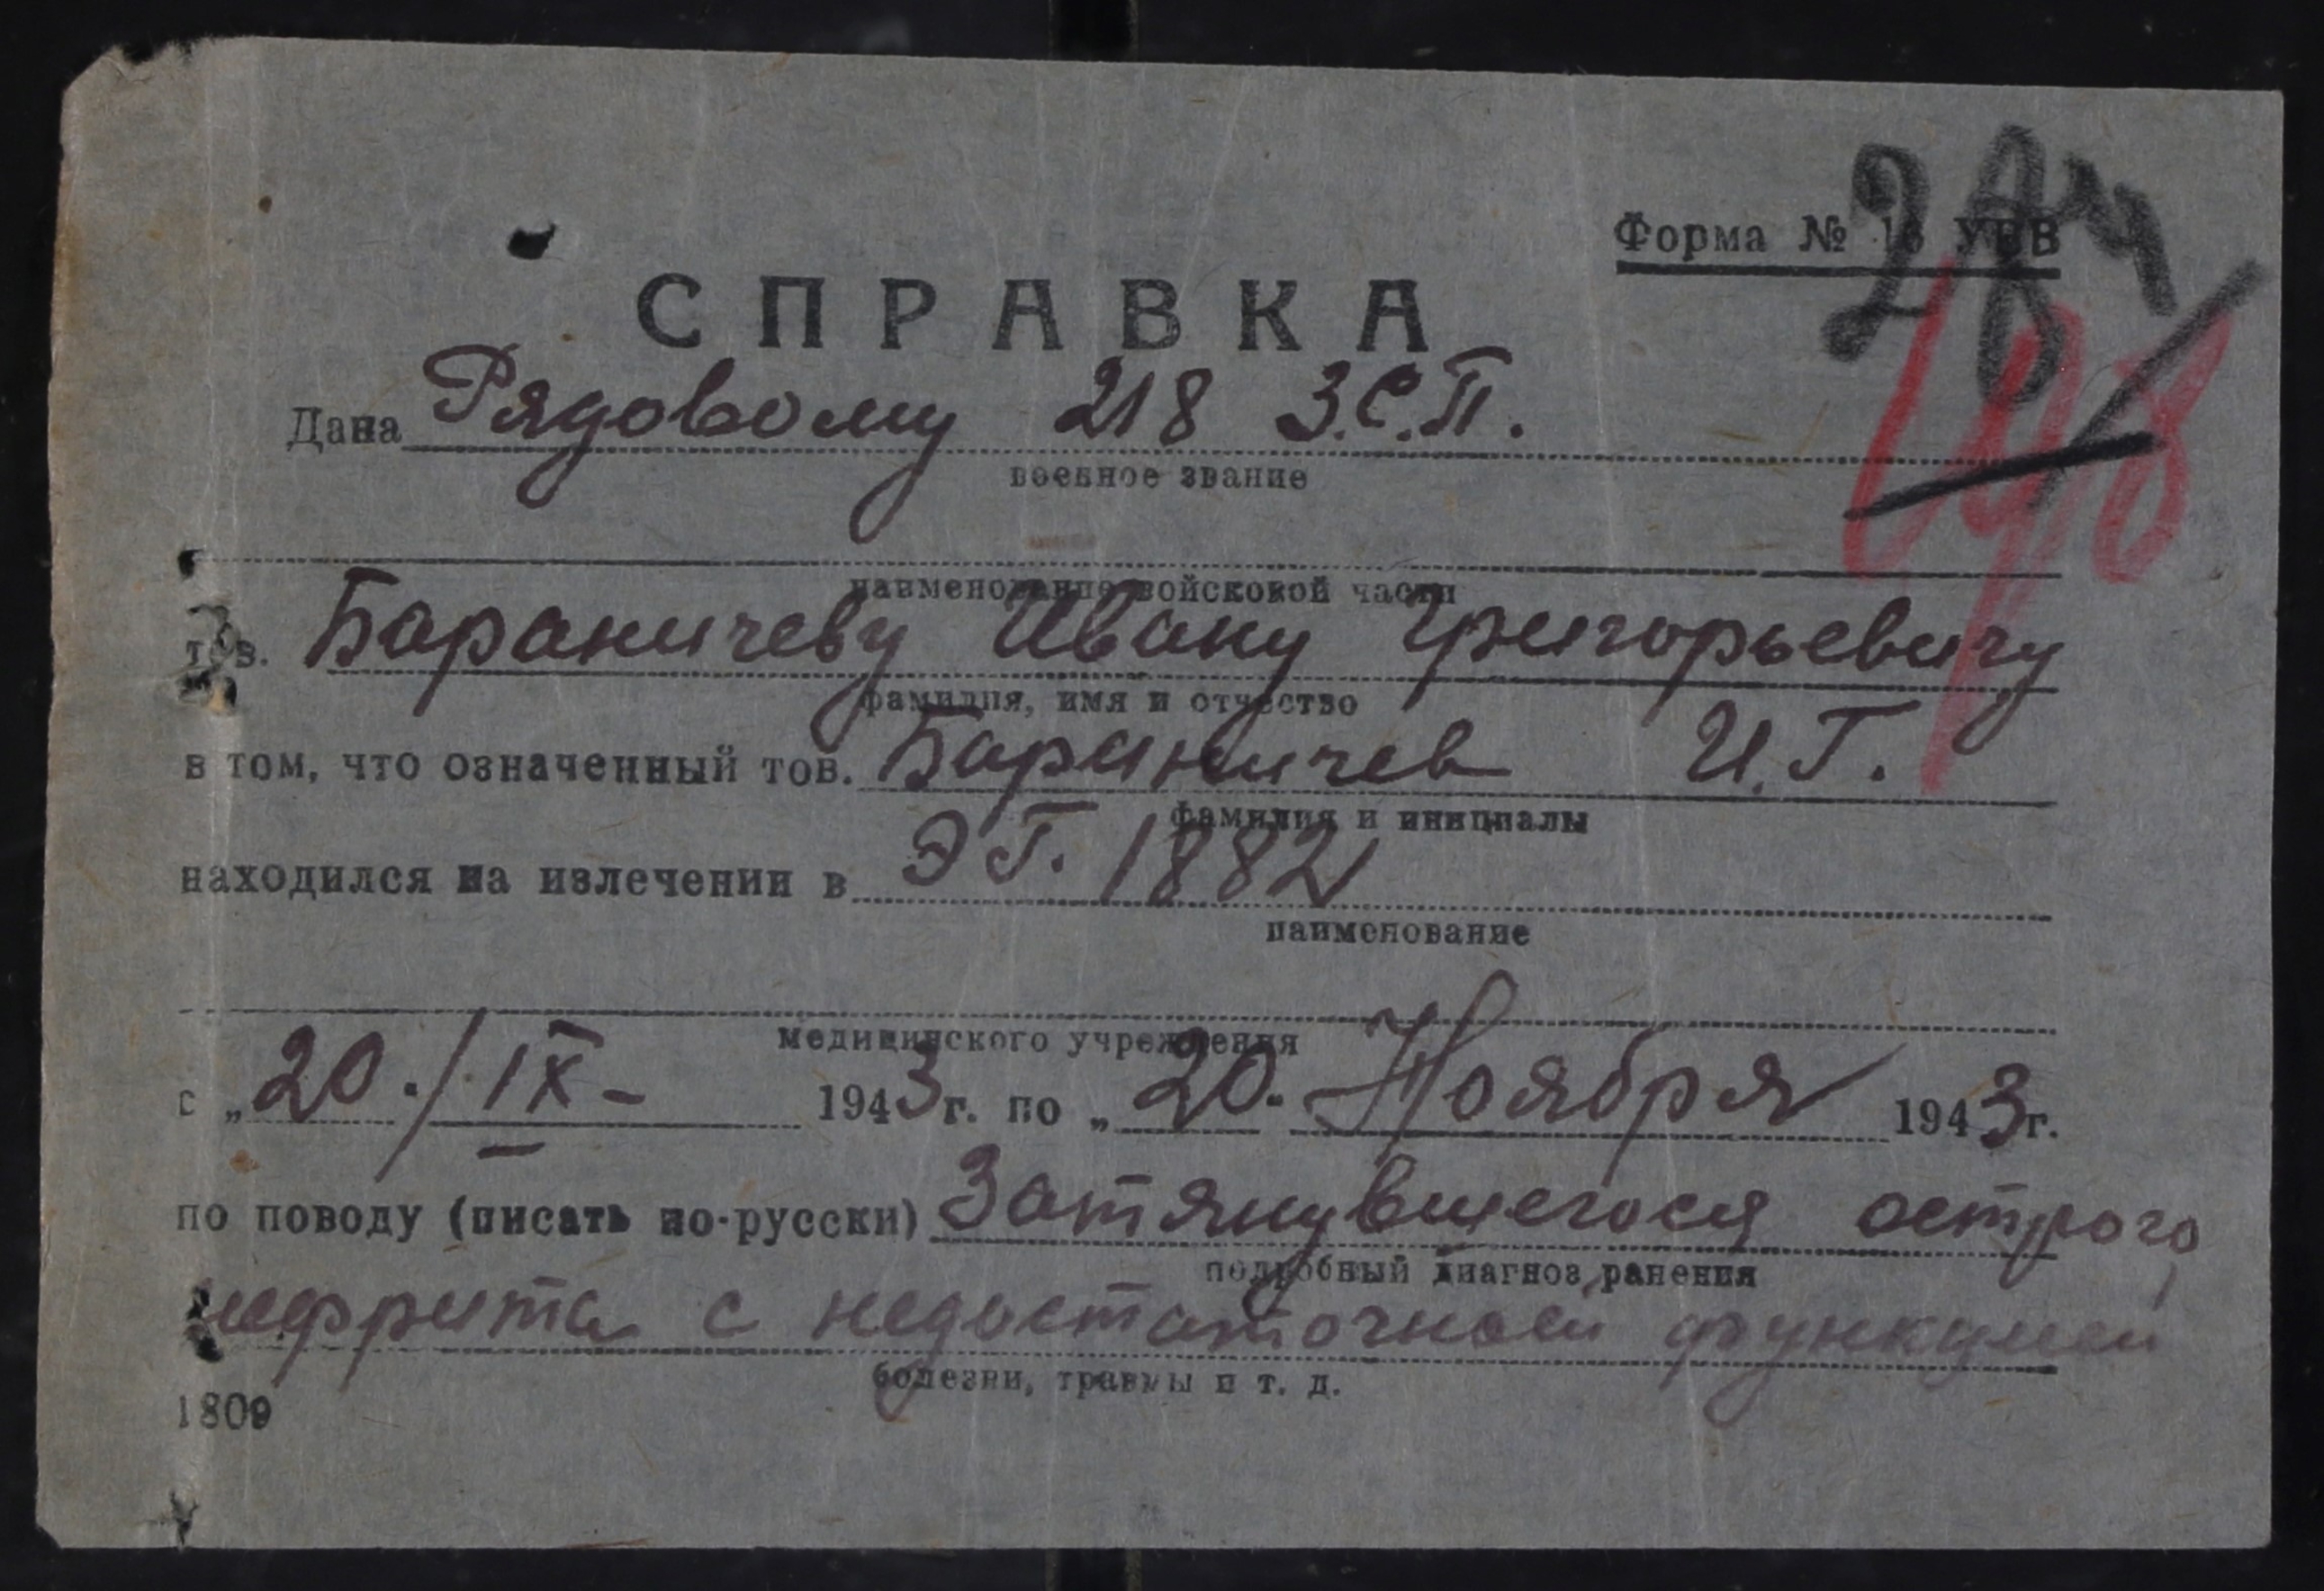 Форма № 16 УВВ
284
198
СПРАВКА
Дана Рядовому 218 З.С.П.
военное звание
наименование войсковой части
тов. Бараничеву Ивану Григорьевичу
фамилия, имя и отчество
в том, что означенный тов. Бараничев И.Г.
фамилия и инициалы
находился на излечении в ЭГ. 1882
наименование
медицинского учреждения
с „20." / IX - 1943 г. по „20." Ноября 1943 г.
по поводу (писать по-русски) Затянувшегося острого
подробный диагноз ранения
нефрита с недостаточной функцией
болезни, травмы и т. д.
1809